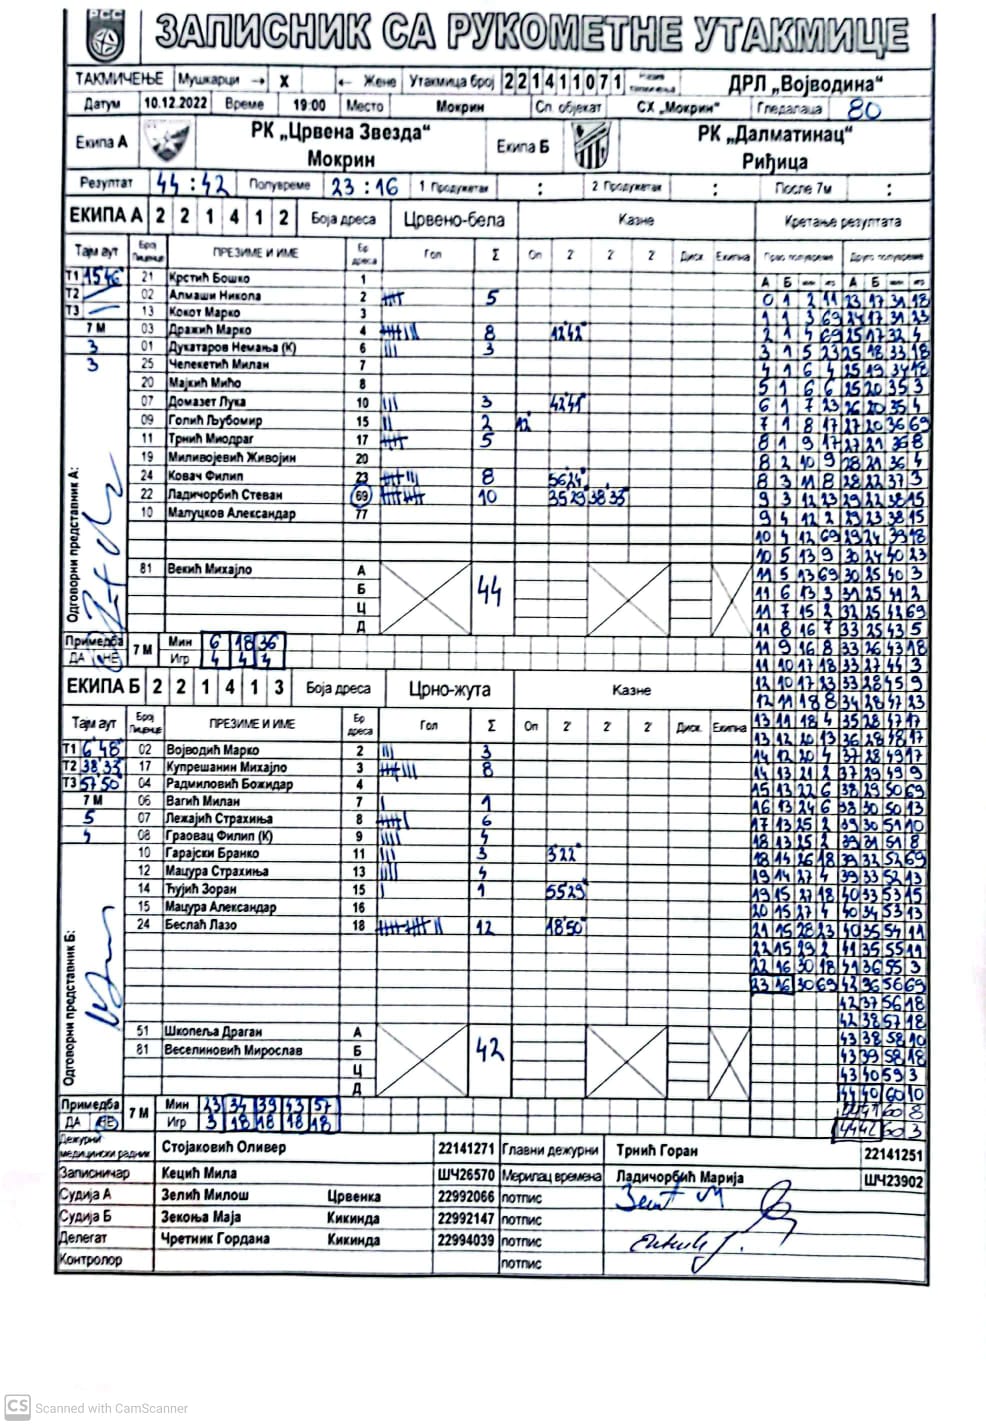 РСС
ЗАПИСНИК СА РУКОМЕТНЕ УТАКМИЦЕ
ТАКМИЧЕЊЕ Мушкарци → X ← Жене Утакмица број 2 2 1 4 1 1 0 7 1 ДРЛ „Војводина“
Датум 10.12.2022 Време 19:00 Место Мокрин Сп. објекат СХ „Мокрин“ Гледалаца 80
Екипа А РК „Црвена Звезда“ Мокрин Екипа Б РК „Далматинац“ Риђица
Резултат 44 : 42 Полувреме 23 : 16 1 Продужетак : 2 Продужетак : После 7м :
ЕКИПА А 2 2 1 4 1 2 Боја дреса Црвено-бела Казне Кретање резултата
Тајм аут Број Лиценце ПРЕЗИМЕ И ИМЕ Бр дреса Гол Σ Оп 2 2 2 Диск Екипна
А Б А Б
Т1 21 Крстић Бошко 1
Т2 02 Алмаши Никола 2 5
Т3 13 Кокот Марко 3
7 М 03 Дражић Марко 4 8 12'42"
3 01 Дукатаров Немања (К) 6 3
3 25 Челекетић Милан 7
20 Мајкић Мићо 8
07 Домазет Лука 10 3 42'41"
09 Голић Љубомир 15 2 12'
11 Трнић Миодраг 17 5
19 Миливојевић Живојин 20
24 Ковач Филип 23 8 56'24"
22 Ладичорбић Стеван 69 10 35'29" 38'35"
10 Малуцков Александар 77
81 Векић Михајло А
Б 44
Ц
Д
Одговорни представник А:
Примедба 7 М Мин 6 18 36
ДА НЕ Игр 4 4 4
ЕКИПА Б 2 2 1 4 1 3 Боја дреса Црно-жута Казне
Тајм аут Број Лиценце ПРЕЗИМЕ И ИМЕ Бр дреса Гол Σ Оп 2' 2' 2' Диск. Екипна
Т1 6'48" 02 Војводић Марко 2 3
Т2 38'33" 17 Купрешанин Михајло 3 8
Т3 57'50" 04 Радмиловић Божидар 4
7 М 06 Вагић Милан 7 1
5 07 Лежајић Страхиња 8 6
4 08 Граовац Филип (К) 9 4
10 Гарајски Бранко 11 3 3'22"
12 Мацура Страхиња 13 4
14 Ћујић Зоран 15 1 55'29"
15 Мацура Александар 16
24 Беслаћ Лазо 18 12 18'50"
51 Шкопеља Драган А
81 Веселиновић Мирослав Б 42
Ц
Д
Одговорни представник Б:
Примедба 7 М Мин 23 34 39 43 57
ДА НЕ Игр 3 18 18 18 18
0 1 2 11 23 17 31 18
1 1 3 69 24 17 31 23
2 1 4 69 25 17 32 4
3 1 5 23 25 18 33 18
4 1 6 4 25 19 34 18
5 1 6 6 25 20 35 3
6 1 7 23 26 20 35 4
7 1 8 17 27 20 36 69
8 1 9 17 27 21 36 8
8 2 10 9 28 21 36 4
8 3 11 8 28 22 37 3
9 3 12 23 29 22 38 15
9 4 12 2 29 23 38 15
10 4 12 69 29 24 39 18
10 5 13 9 30 24 40 23
11 5 13 69 30 25 40 3
11 6 13 3 31 25 41 2
11 7 15 2 32 25 42 69
11 8 16 7 33 25 43 5
11 9 16 8 33 26 43 18
11 10 17 18 33 27 44 3
12 10 17 23 33 28 45 9
12 11 18 8 34 28 47 23
13 11 18 4 35 28 47 17
13 12 20 13 36 28 48 17
14 12 20 4 37 28 49 17
14 13 21 2 37 29 49 9
15 13 22 6 38 29 50 69
16 13 24 6 38 30 50 13
17 13 25 2 39 30 51 10
18 13 25 2 39 31 51 8
18 14 26 18 39 32 52 69
19 14 27 4 39 33 52 13
19 15 27 18 40 33 53 15
20 15 27 4 40 34 53 13
21 15 28 23 40 35 54 11
22 15 29 2 41 35 55 11
22 16 30 18 41 36 55 3
23 16 30 69 42 36 56 69
42 37 56 18
42 38 57 18
43 38 58 10
43 39 58 18
43 40 59 3
44 40 60 10
44 41 60 8
44 42 60 3
Дежурни медицински радник Стојаковић Оливер 22141271 Главни дежурни Трнић Горан 22141251
Записничар Кецић Мила ШЧ26570 Мерилац времена Ладичорбић Марија ШЧ23902
Судија А Зелић Милош Црвенка 22992066 потпис
Судија Б Зекоња Маја Кикинда 22992147 потпис
Делегат Чретник Гордана Кикинда 22994039 потпис
Контролор потпис
CS Scanned with CamScanner